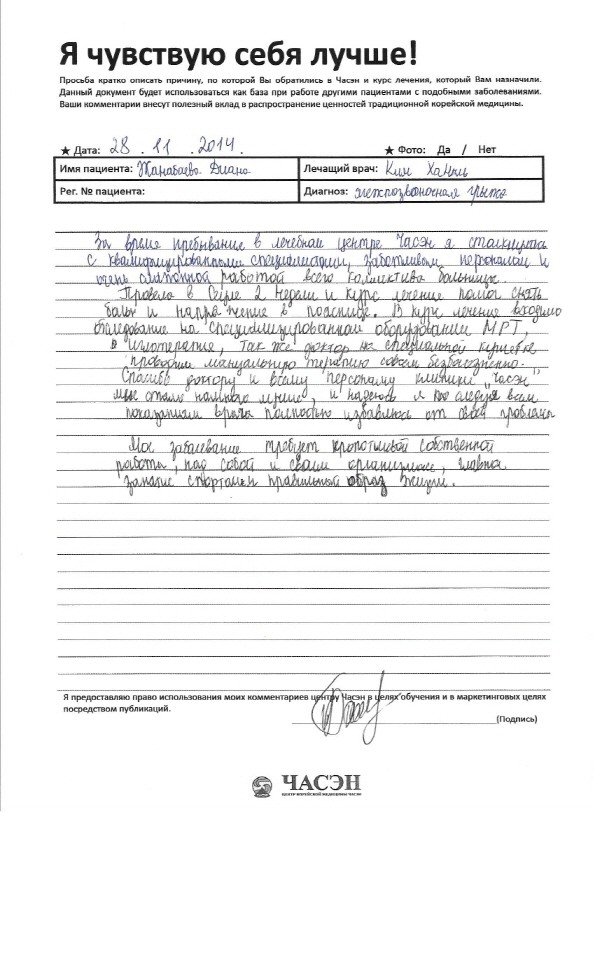 Я чувствую себя лучше!
Просьба кратко описать причину, по которой Вы обратились в Часэн и курс лечения, который Вам назначили.
Данный документ будет использоваться как база при работе другими пациентами с подобными заболеваниями.
Ваши комментарии внесут полезный вклад в распространение ценностей традиционной корейской медицины.
★ Дата: 28 . 11 . 2014. ★ Фото: Да / Нет
Имя пациента: Жанабаева Диана Лечащий врач: Ким
Рег. № пациента: Диагноз: межпозвоночная грыжа
За время пребывания в лечебном центре Часэн я столкнулась
с квалифицированными специалистами, заботливым персоналом и
очень слаженной работой всего коллектива больницы.
Провела в Сеуле 2 недели и курс лечение помог снять
боль и напряжение в пояснице. В курс лечение входило
обследование на специализированном оборудовании МРТ,
иглотерапия, так же доктор на специальной кушетке
проводил мануальную терапию совсем безболезненно.
Спасибо доктору и всему персоналу клиники "Часэн"
мне стало намного лучше, и надеюсь я последуя всем
показаниям врача полностью избавлюсь от своей проблемы
Мое заболевание требует кропотливой собственной
работы, над собой и своим организмом, главное
занятие спортом и правильный образ жизни.
Я предоставляю право использования моих комментариев центру Часэн в целях обучения и в маркетинговых целях
посредством публикаций.
(Подпись)
ЧАСЭН
ЦЕНТР КОРЕЙСКОЙ МЕДИЦИНЫ ЧАСЭН